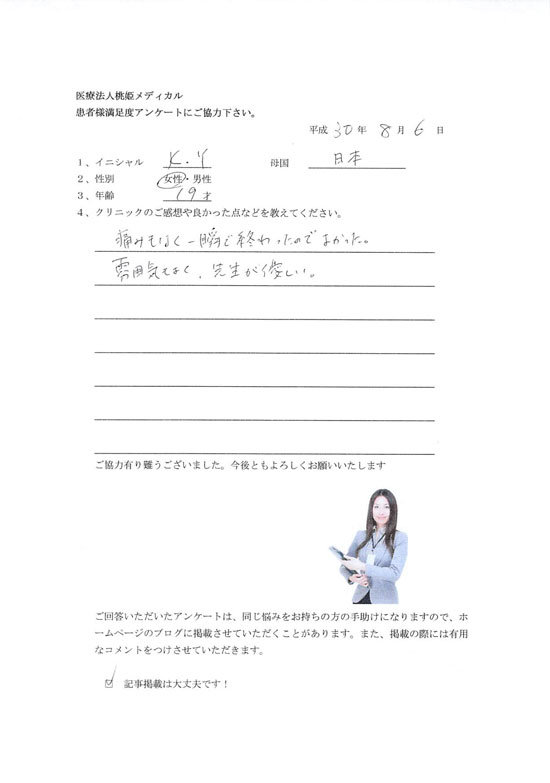 医療法人桃姫メディカル
患者様満足度アンケートにご協力下さい。
平成 30 年 8 月 6 日
1、イニシャル K.Y 母国 日本
2、性別 女性・男性
3、年齢 19 才
4、クリニックのご感想や良かった点などを教えてください。
痛みもなく一瞬で終わったのでよかった。
雰囲気もよく、先生が優しい。
ご協力有り難うございました。今後ともよろしくお願いいたします
ご回答いただいたアンケートは、同じ悩みをお持ちの方の手助けになりますので、ホ
ームページのブログに掲載させていただくことがあります。また、掲載の際には有用
なコメントをつけさせていただきます。
☑ 記事掲載は大丈夫です！